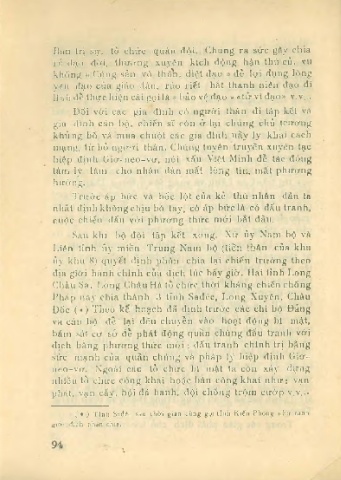 tôn trị sự, tổ chức quân đội. Chúng ra sức gây chia
rẽ đạo đời, thường xuyên kích động hận thù cũ, vu
khống «Cộng sản vô thần, diệt đạo» để lợi dụng lòng
yêu đạo của giáo dân, ráo riết bắt thanh niên đạo đi
lính để thực hiện cái gọi là «bảo vệ đạo» «tử vì đạo» v.v...
Đối với các gia đình có người thân đi tập kết và
gia đình cán bộ, chiến sĩ còn ở lại chúng chủ trương
khủng bố và mua chuộc các gia đình này ly khai cách
mạng, từ bỏ người thân. Chúng tuyên truyền xuyên tạc
hiệp định Giơ-ne-vơ, nói xấu Việt Minh để tác động
tâm lý, làm cho nhân dân mất lòng tin, mất phương
hướng.
Trước áp bức và bóc lột của kẻ thù nhân dân ta
nhất định không chịu bó tay, có áp bức là có đấu tranh,
cuộc chiến đấu với phương thức mới bắt đầu.
Sau khi bộ đội tập kết xong, Xứ ủy Nam bộ và
Liên tỉnh ủy miền Trung Nam bộ (tiền thân của khu
ủy khu 8) quyết định phân chia lại chiến trường theo
địa giới hành chính của địch lúc bấy giờ. Hai tỉnh Long
Châu Sa, Long Châu Hà tổ chức thời kháng chiến chống
Pháp nay chia thành 3 tỉnh Sađéc, Long Xuyên, Châu
Đốc (*) Theo kế hoạch đã định trước các chi bộ Đảng
và cán bộ để lại đều chuyển vào hoạt động bí mật,
bám sát cơ sở để phát động quần chúng đấu tranh với
địch bằng phương thức mới: đấu tranh chính trị bằng
sức mạnh của quần chúng và pháp lý hiệp định Giơ-
ne-vơ. Ngoài các tổ chức bí mật ta còn xây dựng
nhiều tổ chức công khai hoặc bán công khai như: vạn
phát, vạn cấy, hội đá banh, đội chống trộm cướp v.v...
(*) Tỉnh Sađéc sau thời gian cũng gọi tỉnh Kiến Phong
94